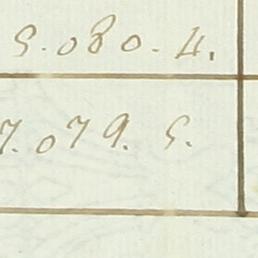 5.080.4.
7.079.5.